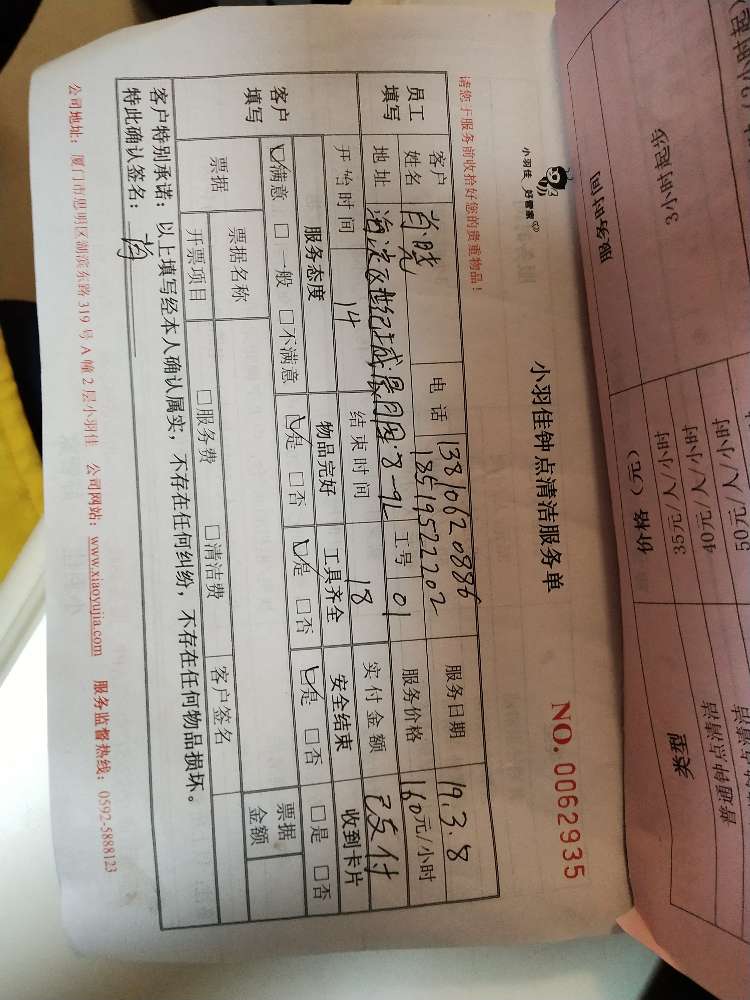 小羽佳 好管家
小羽佳钟点清洁服务单
NO. 0062935
请您于服务前收拾好您的贵重物品！
员工填写
客户姓名 肖晓 电话 13810620886 18519522202 服务日期 19.3.8
地址 海淀区世纪城·晨月园·8-9L 工号 01 服务价格 160元/小时
开始时间 14 结束时间 18 实付金额 已支付
客户填写
服务态度 物品完好 工具齐全 安全结束 收到卡片
☑满意 □一般 □不满意 ☑是 □否 ☑是 □否 ☑是 □否 □是 □否
票据 票据名称 客户签名 票据金额
开票项目 □服务费 □清洁费
客户特别承诺：以上填写经本人确认属实，不存在任何纠纷，不存在任何物品损坏。
特此确认签名： 肖
公司地址：厦门市思明区湖滨东路 319 号 A 幢 2 层小羽佳 公司网站：www.xiaoyujia.com 服务监督热线：0592-5888123
服务时间 价格（元） 类型
3小时起步 35元/人/小时 普通钟点清洁
40元/人/小时
50元/人/小时